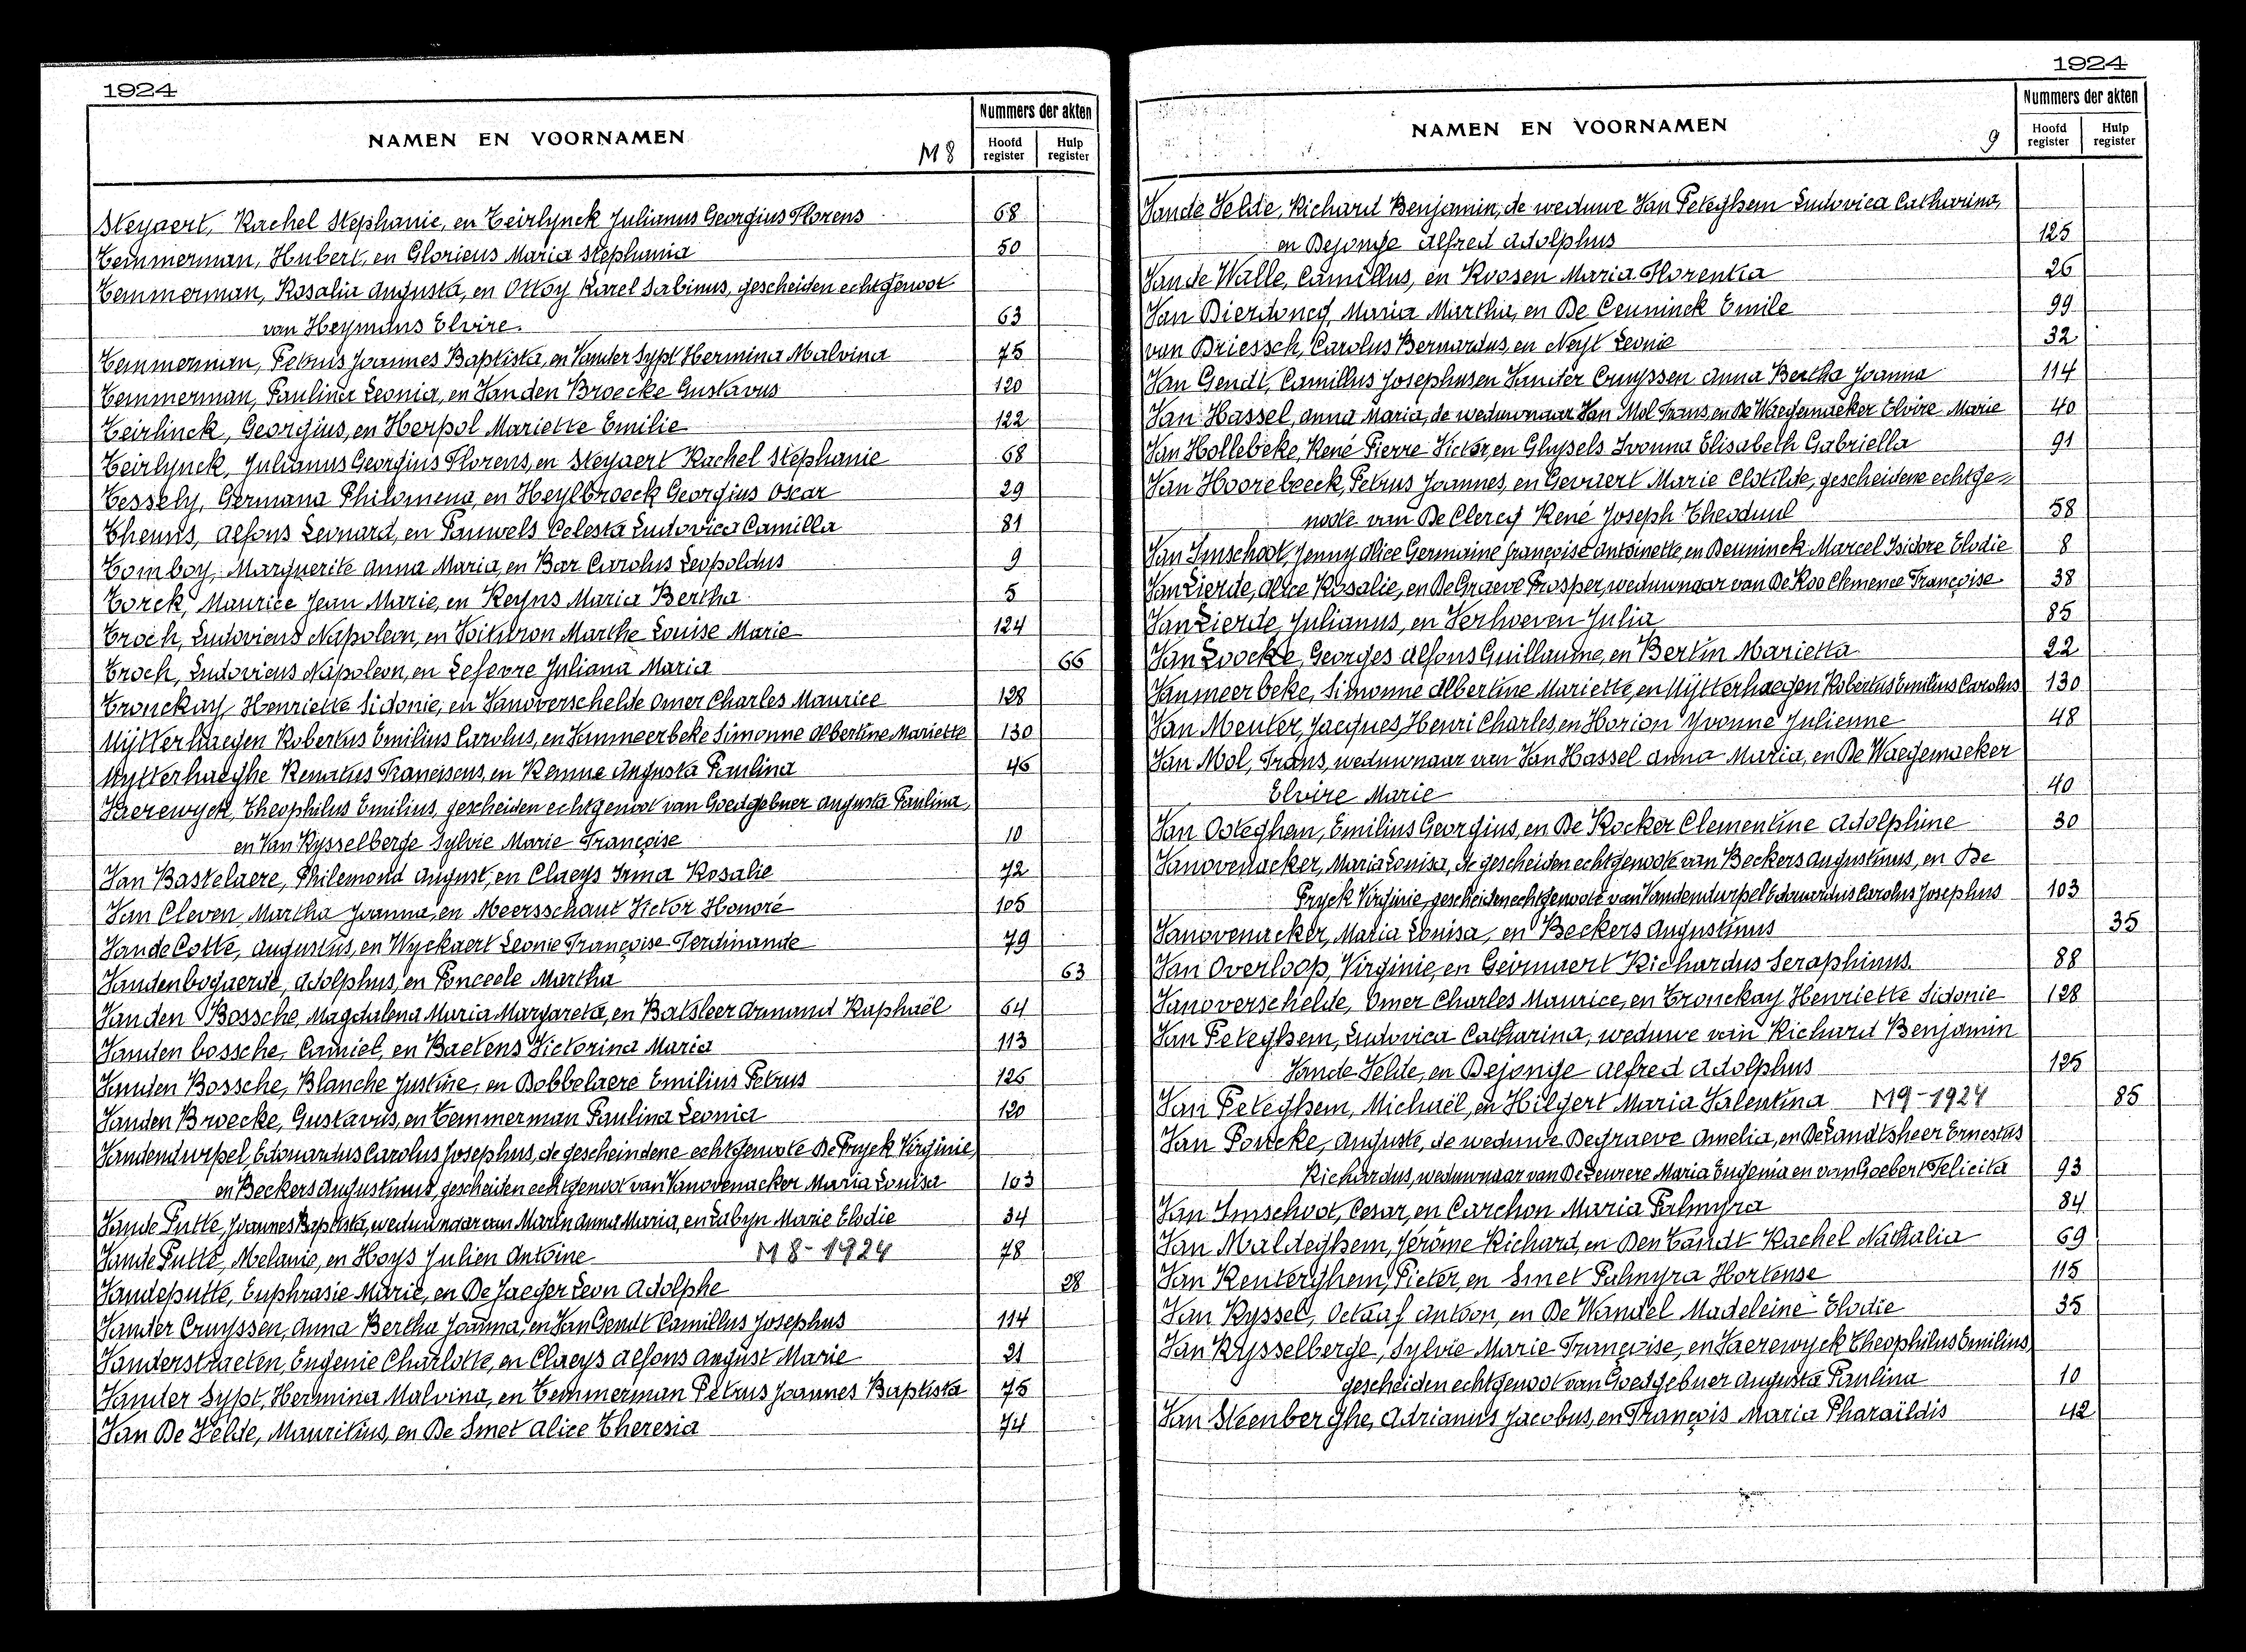 1924
NAMEN EN VOORNAMEN
M 8
Nummers der akten
Hoofd register
Hulp register
Steyaert, Rachel Stephanie, en Teirlynck Julianus Georgius Florens 68
Temmerman, Hubert, en Glorieus Maria Stephania 50
Temmerman, Rosalia Augusta, en Ottoy Karel Sabinus, gescheiden echtgenoot
van Heymans Elvire. 63
Temmerman, Petrus Joannes Baptista, en Vander Sypt Hermina Malvina 75
Temmerman, Paulina Leonia, en Van den Broecke Gustavus 120
Teirlinck, Georgius, en Herpol Mariette Emilie 122
Teirlynck, Julianus Georgius Florens, en Steyaert Rachel Stephanie 68
Tessely, Germana Philomena, en Heylbroeck Georgius Oscar 29
Theunis, Alfons Leonard, en Pauwels Celesta Ludovica Camilla 81
Tomboy, Marguerite Anna Maria, en Bar Carolus Leopoldus 9
Torck, Maurice Jean Marie, en Reyns Maria Bertha 5
Troch, Ludovicus Napoleon, en Voituron Marthe Louise Marie 124
Troch, Ludovicus Napoleon, en Lefevre Juliana Maria 66
Tronckay, Henriette Sidonie, en Vanoverschelde Omer Charles Maurice 128
Uytterhaegen Robertus Emilius Carolus, en Vanmeerbeke Simonne Albertine Mariette 130
Uytterhaeghe Renatus Franciscus, en Remue Augusta Paulina 46
Vaerewyck, Theophilus Emilius, gescheiden echtgenoot van Goedgebuer Augusta Paulina,
en Van Rysselberge Sylvie Marie Françoise 10
Van Bastelaere, Philemond August, en Claeys Irma Rosalie 72
Van Cleven, Martha Joanna, en Meersschaut Victor Honoré 105
Vande Cotte, Augustus, en Wyckaert Leonie Françoise Ferdinande 79
Vandenbogaerde, Adolphus, en Ponceele Martha 63
Van den Bossche, Magdalena Maria Margareta, en Batsleer Armand Raphaël 64
Vanden bossche, Camiel, en Baetens Victorina Maria 113
Vanden Bossche, Blanche Justine, en Dobbelaere Emilius Petrus 126
Vanden Broecke, Gustavus, en Temmerman Paulina Leonia 120
Vandendurpel, Edouardus Carolus Josephus, de gescheindene echtgenote De Pryck Virginie,
en Beckers Augustinus, gescheiden echtgenoot van Vanovenacker Maria Louisa 103
Vande Putte, Joannes Baptista, weduwnaar van Marin Anna Maria, en Labyn Marie Elodie 34
Vande Putte, Melanie, en Hoys Julien Antoine M 8 - 1924 78
Vandeputte, Euphrasie Marie, en De Jaeger Leon Adolphe 28
Vander Cruyssen, Anna Bertha Joanna, en Van Gendt Camillus Josephus 114
Vanderstraeten, Eugenie Charlotte, en Claeys Alfons August Marie 21
Vander Sypt, Hermina Malvina, en Temmerman Petrus Joannes Baptista 75
Van De Velde, Mauritius, en De Smet Alice Theresia 74
1924
NAMEN EN VOORNAMEN
9
Nummers der akten
Hoofd register
Hulp register
Vande Velde, Richard Benjamin, de weduwe Van Peteghem Ludovica Catharina,
en Dejonge Alfred Adolphus 125
Van de Walle, Camillus, en Roosen Maria Florentia 26
Van Dierdoncq, Maria Martha, en De Ceuninck Emile 99
van Driessch, Carolus Bernardus, en Neyt Leonie 32
Van Gendt, Camillus Josephus en Vander Cruyssen Anna Bertha Joanna 114
Van Hassel, Anna Maria, de weduwnaar Van Mol Frans, en De Waegemaeker Elvire Marie 40
Van Hollebeke, René Pierre Victor, en Ghysels Ivonna Elisabeth Gabriella 91
Van Hoorebeeck, Petrus Joannes, en Gevaert Marie Clotilde, gescheidene echtge=
note van De Clercq René Joseph Theoduul 58
Van Imschoot, Jenny Alice Germaine Françoise Antoinette, en Deuninck Marcel Isidore Elodie 8
Van Lierde, Alice Rosalie, en De Graeve Prosper, weduwnaar van De Roo Clemence Françoise 38
Van Lierde, Julianus, en Verhoeven Julia 85
Van Loocke, Georges Alfons Guillaume, en Bertin Marietta 22
Vanmeerbeke, Simonne Albertine Mariette, en Uytterhaegen Robertus Emilius Carolus 130
Van Meuter, Jacques Henri Charles, en Horion Yvonne Julienne 48
Van Mol, Frans, weduwnaar van Van Hassel Anna Maria, en De Waegemaeker
Elvire Marie 40
Van Osteghan, Emilius Georgius, en De Rocker Clementine Adolphine 30
Vanovenacker, Maria Louisa, de gescheiden echtgenoote van Beckers Augustinus, en De
Pryck Virginie, gescheiden echtgenoote van Vandendurpel Edouardus Carolus Josephus 103
Vanovenacker, Maria Louisa, en Beckers Augustinus 35
Van Overloop, Virginie, en Geirnaert Richardus Seraphinus. 88
Vanoverschelde, Omer Charles Maurice, en Tronckay Henriette Sidonie 128
Van Peteghem, Ludovica Catharina, weduwe van Richard Benjamin
Vande Velde, en Dejonge Alfred Adolphus 125
Van Peteghem, Michaël, en Hilgert Maria Valentina M9 - 1924 85
Van Poucke, Auguste, de weduwe Degraeve Amelia, en De Landtsheer Ernestus
Richardus, weduwnaar van De Leurere Maria Eugenia en van Goebert Felicita 93
Van Imschoot, Cesar, en Carchon Maria Palmyra 84
Van Maldeghem, Jérôme Richard, en Den Tandt Rachel Nathalia 69
Van Renterghem, Pieter, en Smet Palmyra Hortense 115
Van Ryssel, Octaaf Antoon, en De Wandel Madeleine Elodie 35
Van Rysselberge, Sylvie Marie Françoise, en Vaerewyck Theophilus Emilius,
gescheiden echtgenoot van Goedgebuer Augusta Paulina 10
Van Steenberghe, Adrianus Jacobus, en François Maria Pharaïldis 42